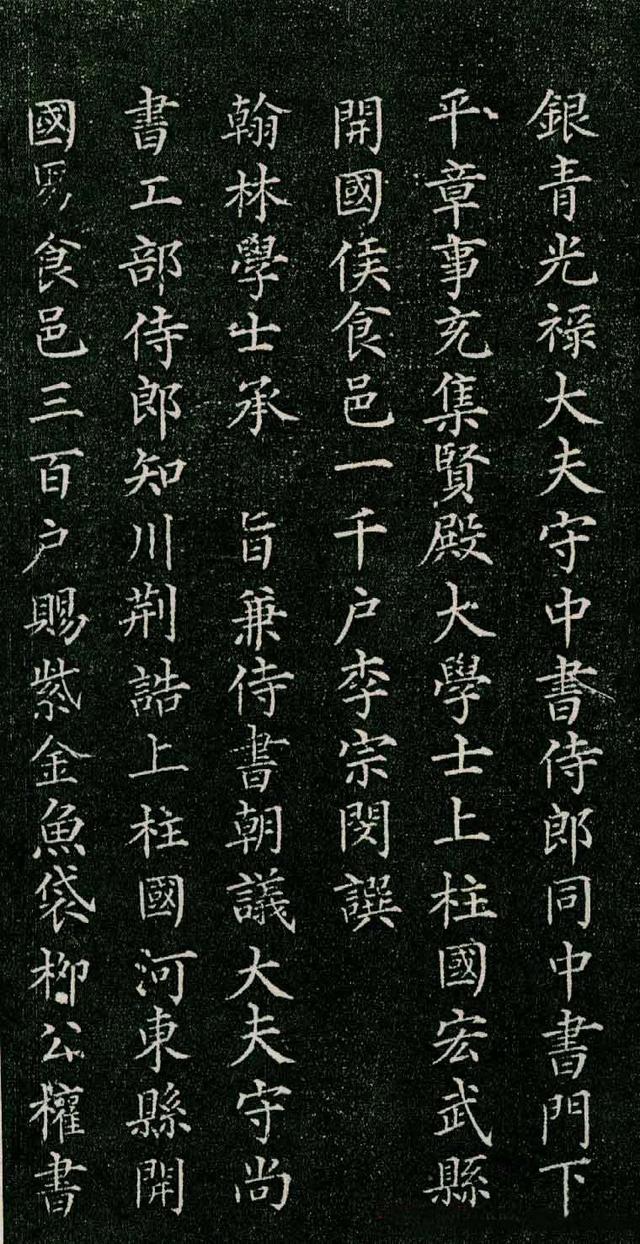 銀青光禄大夫守中書侍郎同中書門下
平章事充集賢殿大學士上柱國宏武縣
開國侯食邑一千户李宗閔譔
翰林學士承　旨兼侍書朝議大夫守尚
書工部侍郎知川荆誥上柱國河東縣開
國男食邑三百户賜紫金魚袋柳公權書